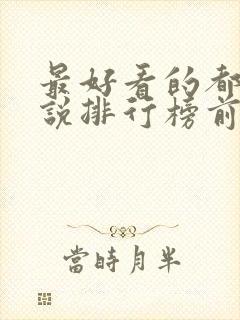 最好看的都
說排行榜前
當時月半